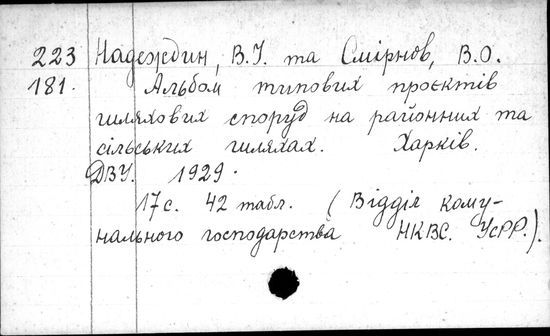 223 Надеждин, В.І. та Смірнов, В.О.
181. Альбом типових проєктів
шляхових споруд на районних та
сільських шляхах. Харків.
ДВУ. 1929.
17с. 42 табл. (Відділ кому-
нального господарства НКВС. УсРР.).